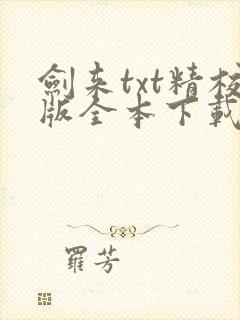 劍来txt精校
版全本下載
羅芳